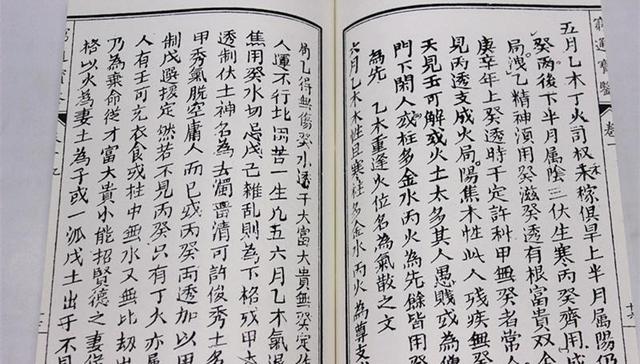 窮通寶鑒 卷一
五月乙木丁火司权禾稼俱旱上半月屬陽乃
癸丙後下半月屬陰三伏生寒丙癸齊用
局洩乙精神湏用癸滋癸透有根富貴双全
庚辛年上癸透時干定許科甲無癸者常
見丙透支成火局陽焦木性此人殘疾無癸
天見壬可解或火土太多其人愚賤或為僧
門下閑人或柱多金水丙火為先餘皆用癸
為先 乙木重逢火位名為氣散之文
六月乙木木性且寒柱多金水丙火為尊支
局乙得無傷癸水透干大富大貴無癸
人運不行北困苦一生凡五六月乙木氣退
焦用癸水切忌戊己雜乱則為下格殘甲木
透制伏土神名為去濁畱清可許俊秀土多
甲秀氣脫空庸人而已或丙癸兩透加以甲
制戊選拔定然若不見丙癸只有丁火亦属
人有壬可充衣食或柱中無水又無比劫出
乃為棄命從才富大貴小能招賢德之妻從
格以火為妻土為子或一派戊土出于不見